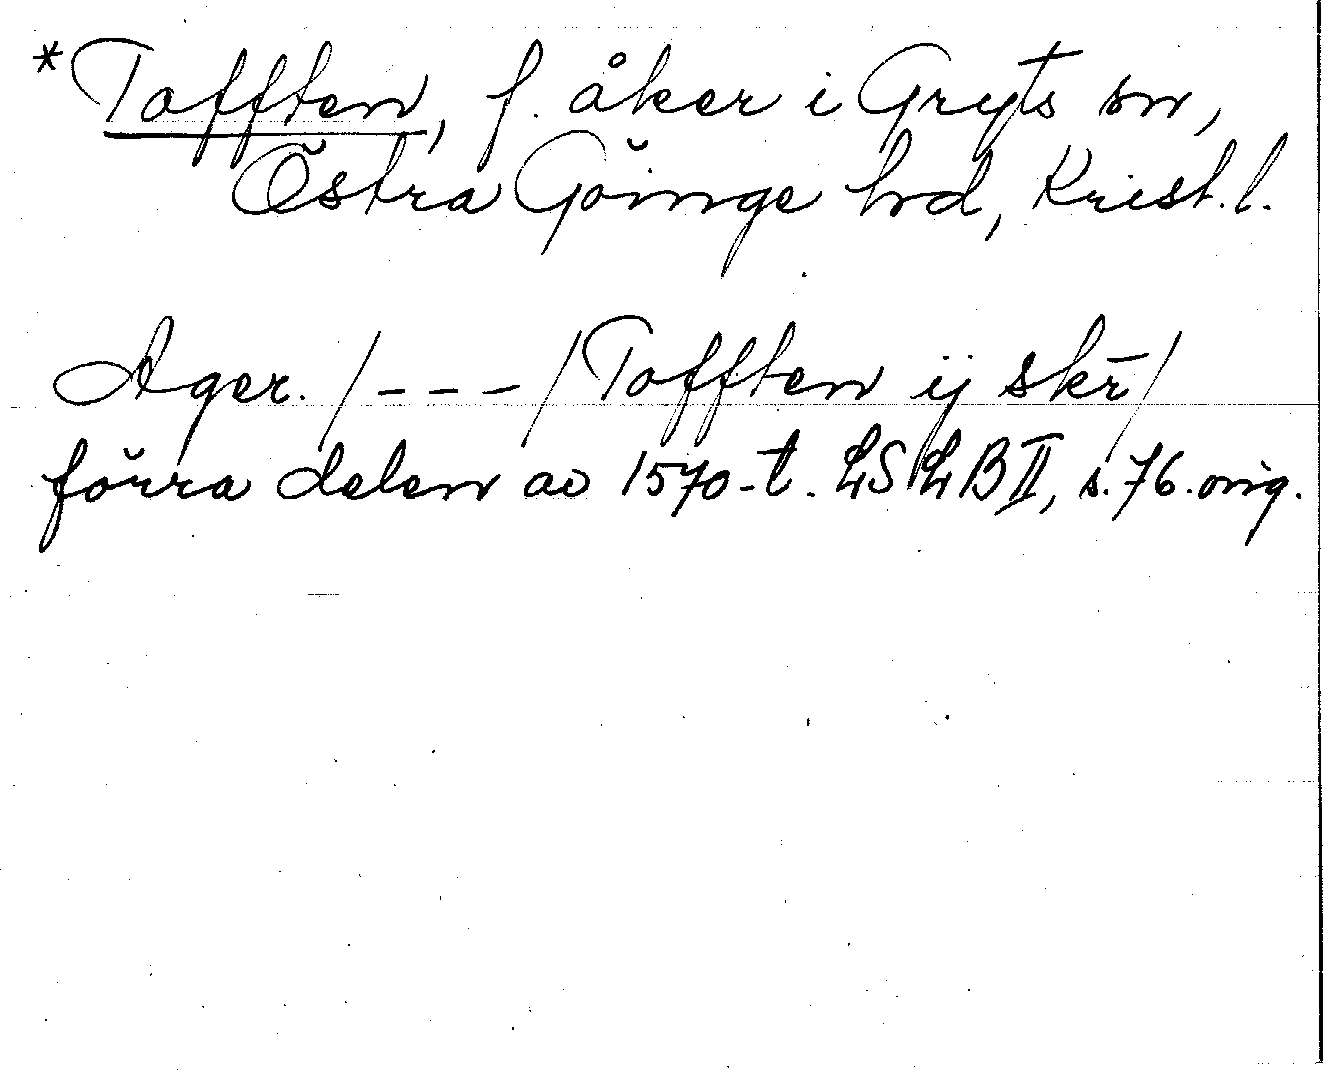 *Tofften, f. åker i Gryts sn,
Östra Göinge hd, Krist. l.
Ager. /---/ Tofften ij skr̄/
förra delen av 1570-t. LSLB II, s. 76. orig.